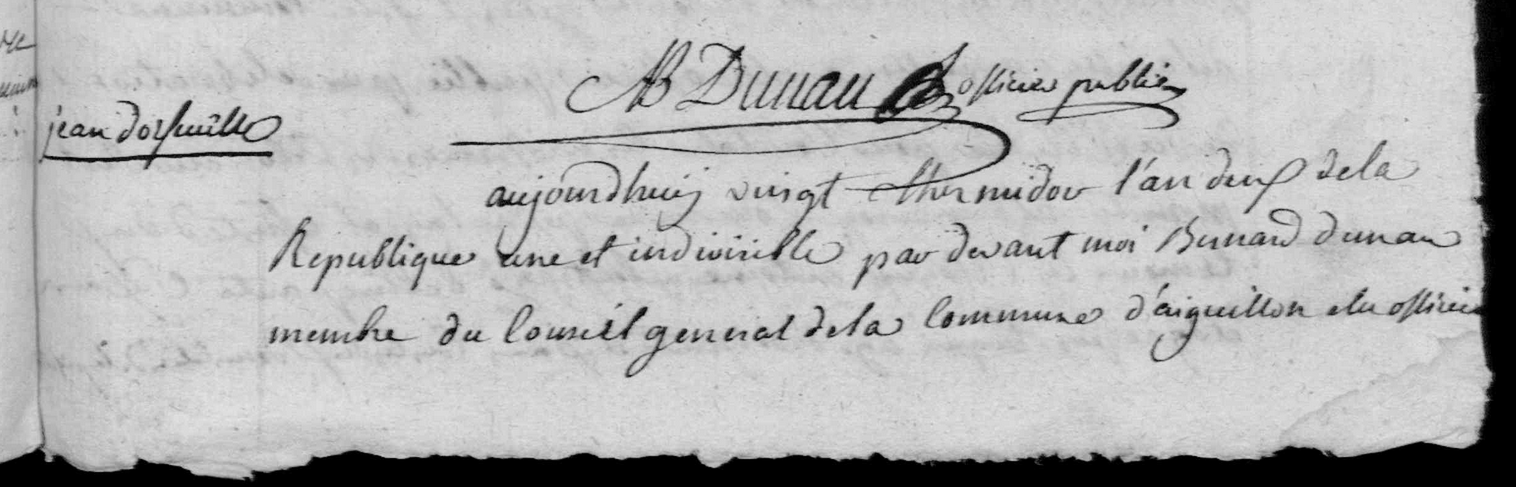 AB Dunau officier public
jean dorfeuille
aujourdhuij vingt thermidor l'an deux de la
Republique une et indivisible par devant moi Bernard dunau
membre du Conseil general de la Commune d'aiguillon elu officier